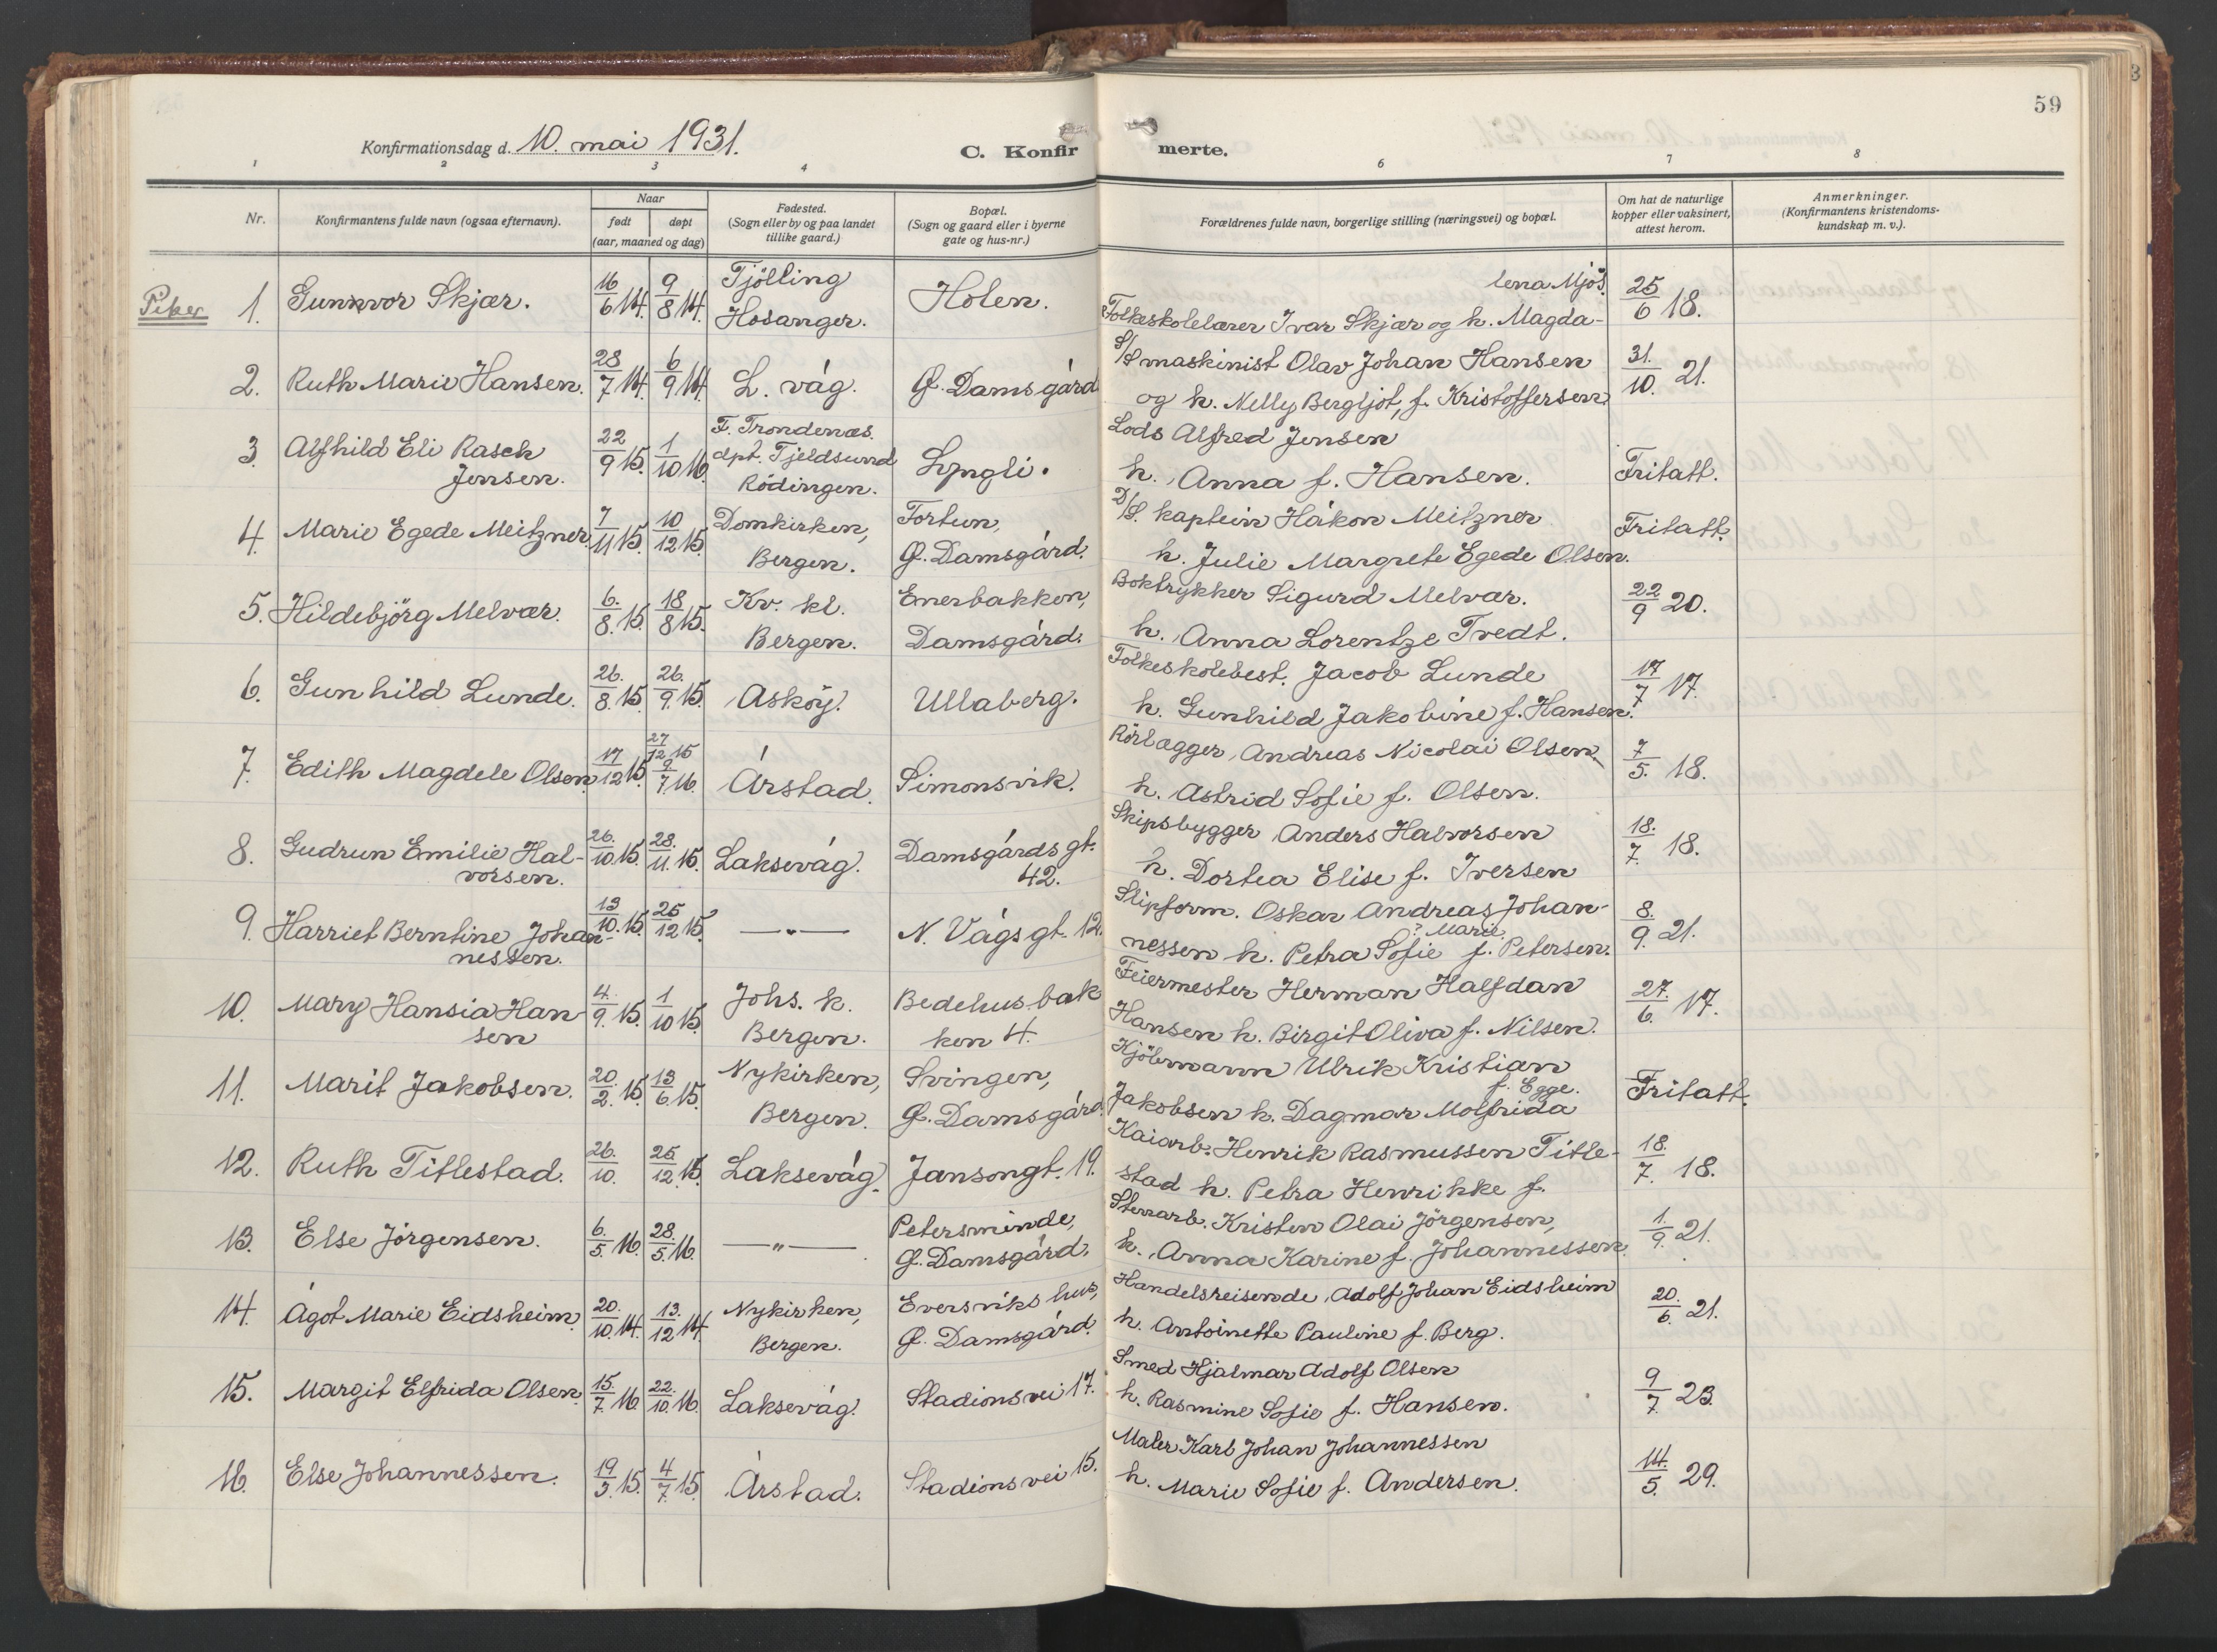 59
Konfirmationsdag d. 10. mai 1931.
C. Konfirmerte.
1 2 3 4 6 7 8
Nr.
Konfirmantens fulde navn (ogsaa efternavn).
Naar
født døpt
(aar, maaned og dag)
Fødested.
(Sogn eller by og paa landet
tillike gaard.)
Bopæl.
(Sogn og gaard eller i byerne
gate og hus-nr.)
Forældrenes fulde navn, borgerlige stilling (næringsvei) og bopæl.
Om hat de naturlige
kopper eller vaksinert,
attest herom.
Anmerkninger.
(Konfirmantens kristendoms-
kundskap m. v.).
Piker
1. Gunnvor Skjær. 16/6 14. 9/8 14. Tjölling
Hosanger. Holen.
lena Mjös.
Folkeskolelærer Ivar Skjær og h. Magda- 25/6 18.
2. Ruth Marie Hansen. 28/7 14. 6/9 14. L. våg. G. Damsgård
S/S maskinist Olav Johan Hansen
og h. Nelly Bergljot, f. Kristoffersen. 31./10. 21.
3. Alfhild Eli Rasch
Jensen. 22/9 15. 1/10 16. F. Trondenæs.
dpt. Tjeldsund
Rödingen. Lyngli.
Lods Alfred Jensen
h. Anna f. Hansen. Fritatt.
4. Marie Egede Meitzner. 7/11 15. 10/12 15. Domkirken,
Bergen. Fortun,
G. Damsgård.
D/S. kaptein Håkon Meitzner
h. Julie Margrete Egede Olsen. Fritatt.
5. Hildebjörg Melvær. 6./8. 15. 18/8 15. Kv. kl.
Bergen. Enerbakken,
Damsgård.
Boktrykker Sigurd Melvær.
h. Anna Lorentze Tvedt. 22/9 20.
6. Gunhild Lunde. 26./8. 15. 26./9. 15. Asköy. Ullaberg.
Folkeskolebest. Jacob Lunde
h. Gunhild Jakobine f. Hansen. 17/7 17.
7. Edith Magdele Olsen. 17/12 15. 27/12 15
9/7 16. Årstad. Simonsvik.
Rörlægger Andreas Nicolai Olsen
h. Astrid Sofie f. Olsen. 7/5. 18.
8. Gudrun Emilie Hal-
vorsen. 26./10. 15. 28./11. 15. Laksevåg. Damsgårds gt.
42.
Skipsbygger Anders Halvorsen
h. Dortea Elise f. Iversen 18./7. 18.
9. Harriet Berntine Johan-
nessen. 13/10. 15. 25/12 15. —"— N. Vågs gt. 12.
Slipform. Oskar Andreas Johan-
? Marie.
nessen h. Petra Sofie f. Petersen. 8./9. 21.
10. Mary Hansia Han-
sen 4./9. 15. 1/10 15. Johs. k.
Bergen. Bedehusbak
ken 4.
Feiermester Herman Halfdan
Hansen h. Birgit Oliva f. Nilsen. 27./6. 17.
11. Marit Jakobsen. 20./2. 15. 13/6. 15. Nykirken,
Bergen. Svingen,
G. Damsgård.
Kjölemann Ulrik Kristian
f. Egge.
Jakobsen h. Dagmar Molfrida Fritatt.
12. Ruth Titlestad. 26./10. 25/12. 15. Laksevåg. Jansongt. 19.
Kaiarb. Henrik Rasmussen Title-
stad h. Petra Henrikke f. 18./7. 18.
13. Else Jörgensen. 6./5. 16. 28./5. 16. —"— Petersminde,
G. Damsgård.
Stenarb. Kristen Olai Jörgensen,
h. Anna Karine f. Johannessen. 1./9. 21.
14. Ågot Marie Eidsheim. 20./10. 14. 13./12 14. Nykirken,
Bergen. Eversviks hus,
G. Damsgård.
Handelsreisende Adolf Johan Eidsheim
h. Antoinette Pauline f. Berg. 20./6. 21.
15. Margit Elfrida Olsen. 15./7. 16. 22./10. 16. Laksevåg. Stadions vei 17.
Smed Hjalmar Adolf Olsen
h. Rasmine Sofie f. Hansen. 9/7. 23.
16. Else Johannessen. 19/3. 15. 4/7. 15. Årstad. Stadions vei 15.
Maler Karl Johan Johannessen
h. Marie Sofie f. Andersen. 14./5. 29.